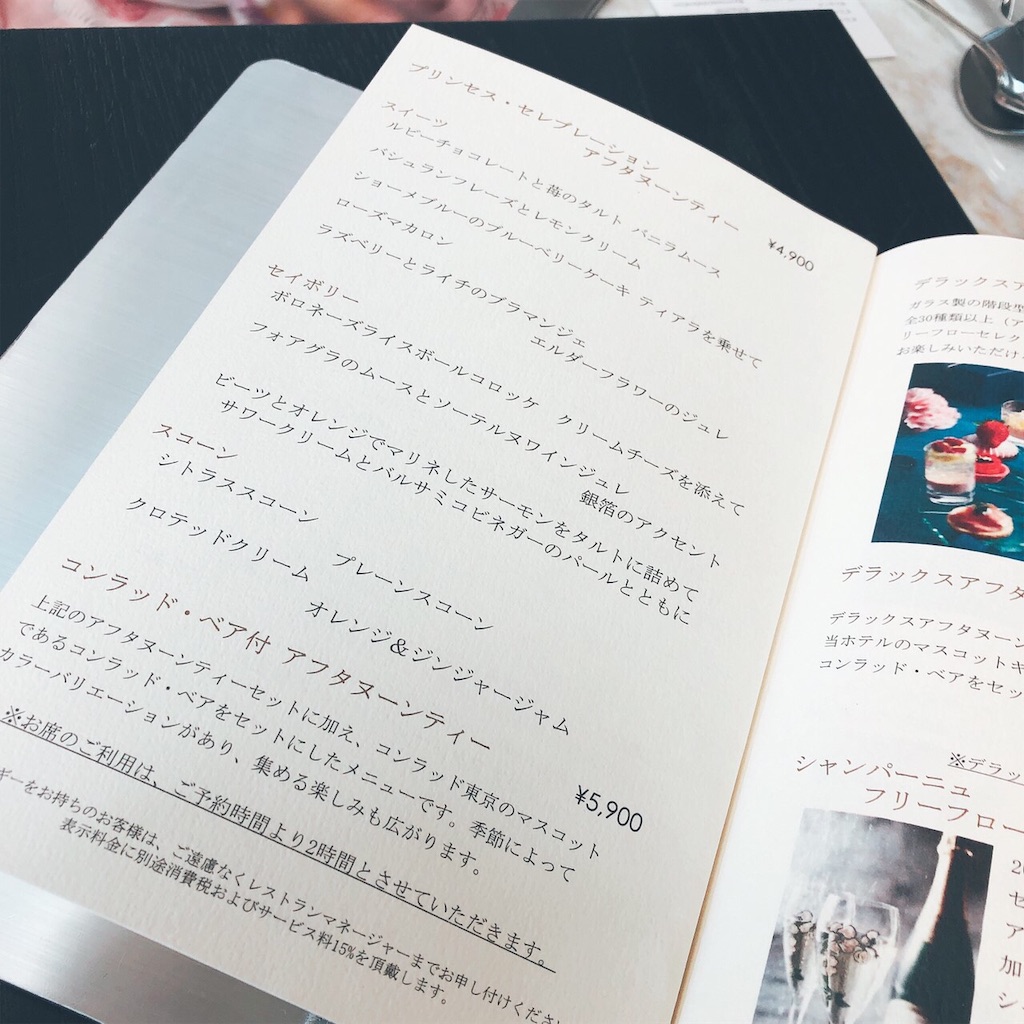 プリンセス・セレブレーション
アフタヌーンティー
¥4,900
スイーツ
ルビーチョコレートと苺のタルト バニラムース
バシュランフレーズとレモンクリーム
ショーメブルーのブルーベリーケーキ ティアラを乗せて
ローズマカロン
ラズベリーとライチのブラマンジェ
エルダーフラワーのジュレ
セイボリー
ボロネーズライスボールコロッケ クリームチーズを添えて
フォアグラのムースとソーテルヌワインジュレ
銀箔のアクセント
ビーツとオレンジでマリネしたサーモンをタルトに詰めて
サワークリームとバルサミコビネガーのパールとともに
スコーン
シトラススコーン プレーンスコーン
クロテッドクリーム オレンジ&ジンジャージャム
コンラッド・ベア付 アフタヌーンティー
¥5,900
上記のアフタヌーンティーセットに加え、コンラッド東京のマスコット
であるコンラッド・ベアをセットにしたメニューです。季節によって
カラーバリエーションがあり、集める楽しみも広がります。
※お席のご利用は、ご予約時間より2時間とさせていただきます。
ギーをお持ちのお客様は、ご遠慮なくレストランマネージャーまでお申し付けくださ
表示料金に別途消費税およびサービス料15%を頂戴します。
デラックスア
ガラス製の階段型
全30種類以上（ア
リーフローセレク
お楽しみいただけ
デラックスアフタ
デラックスアフタヌーン
当ホテルのマスコットキ
コンラッド・ベアをセッ
※デラッ
シャンパーニュ
フリーフロー
2
セ
ア
加
シ